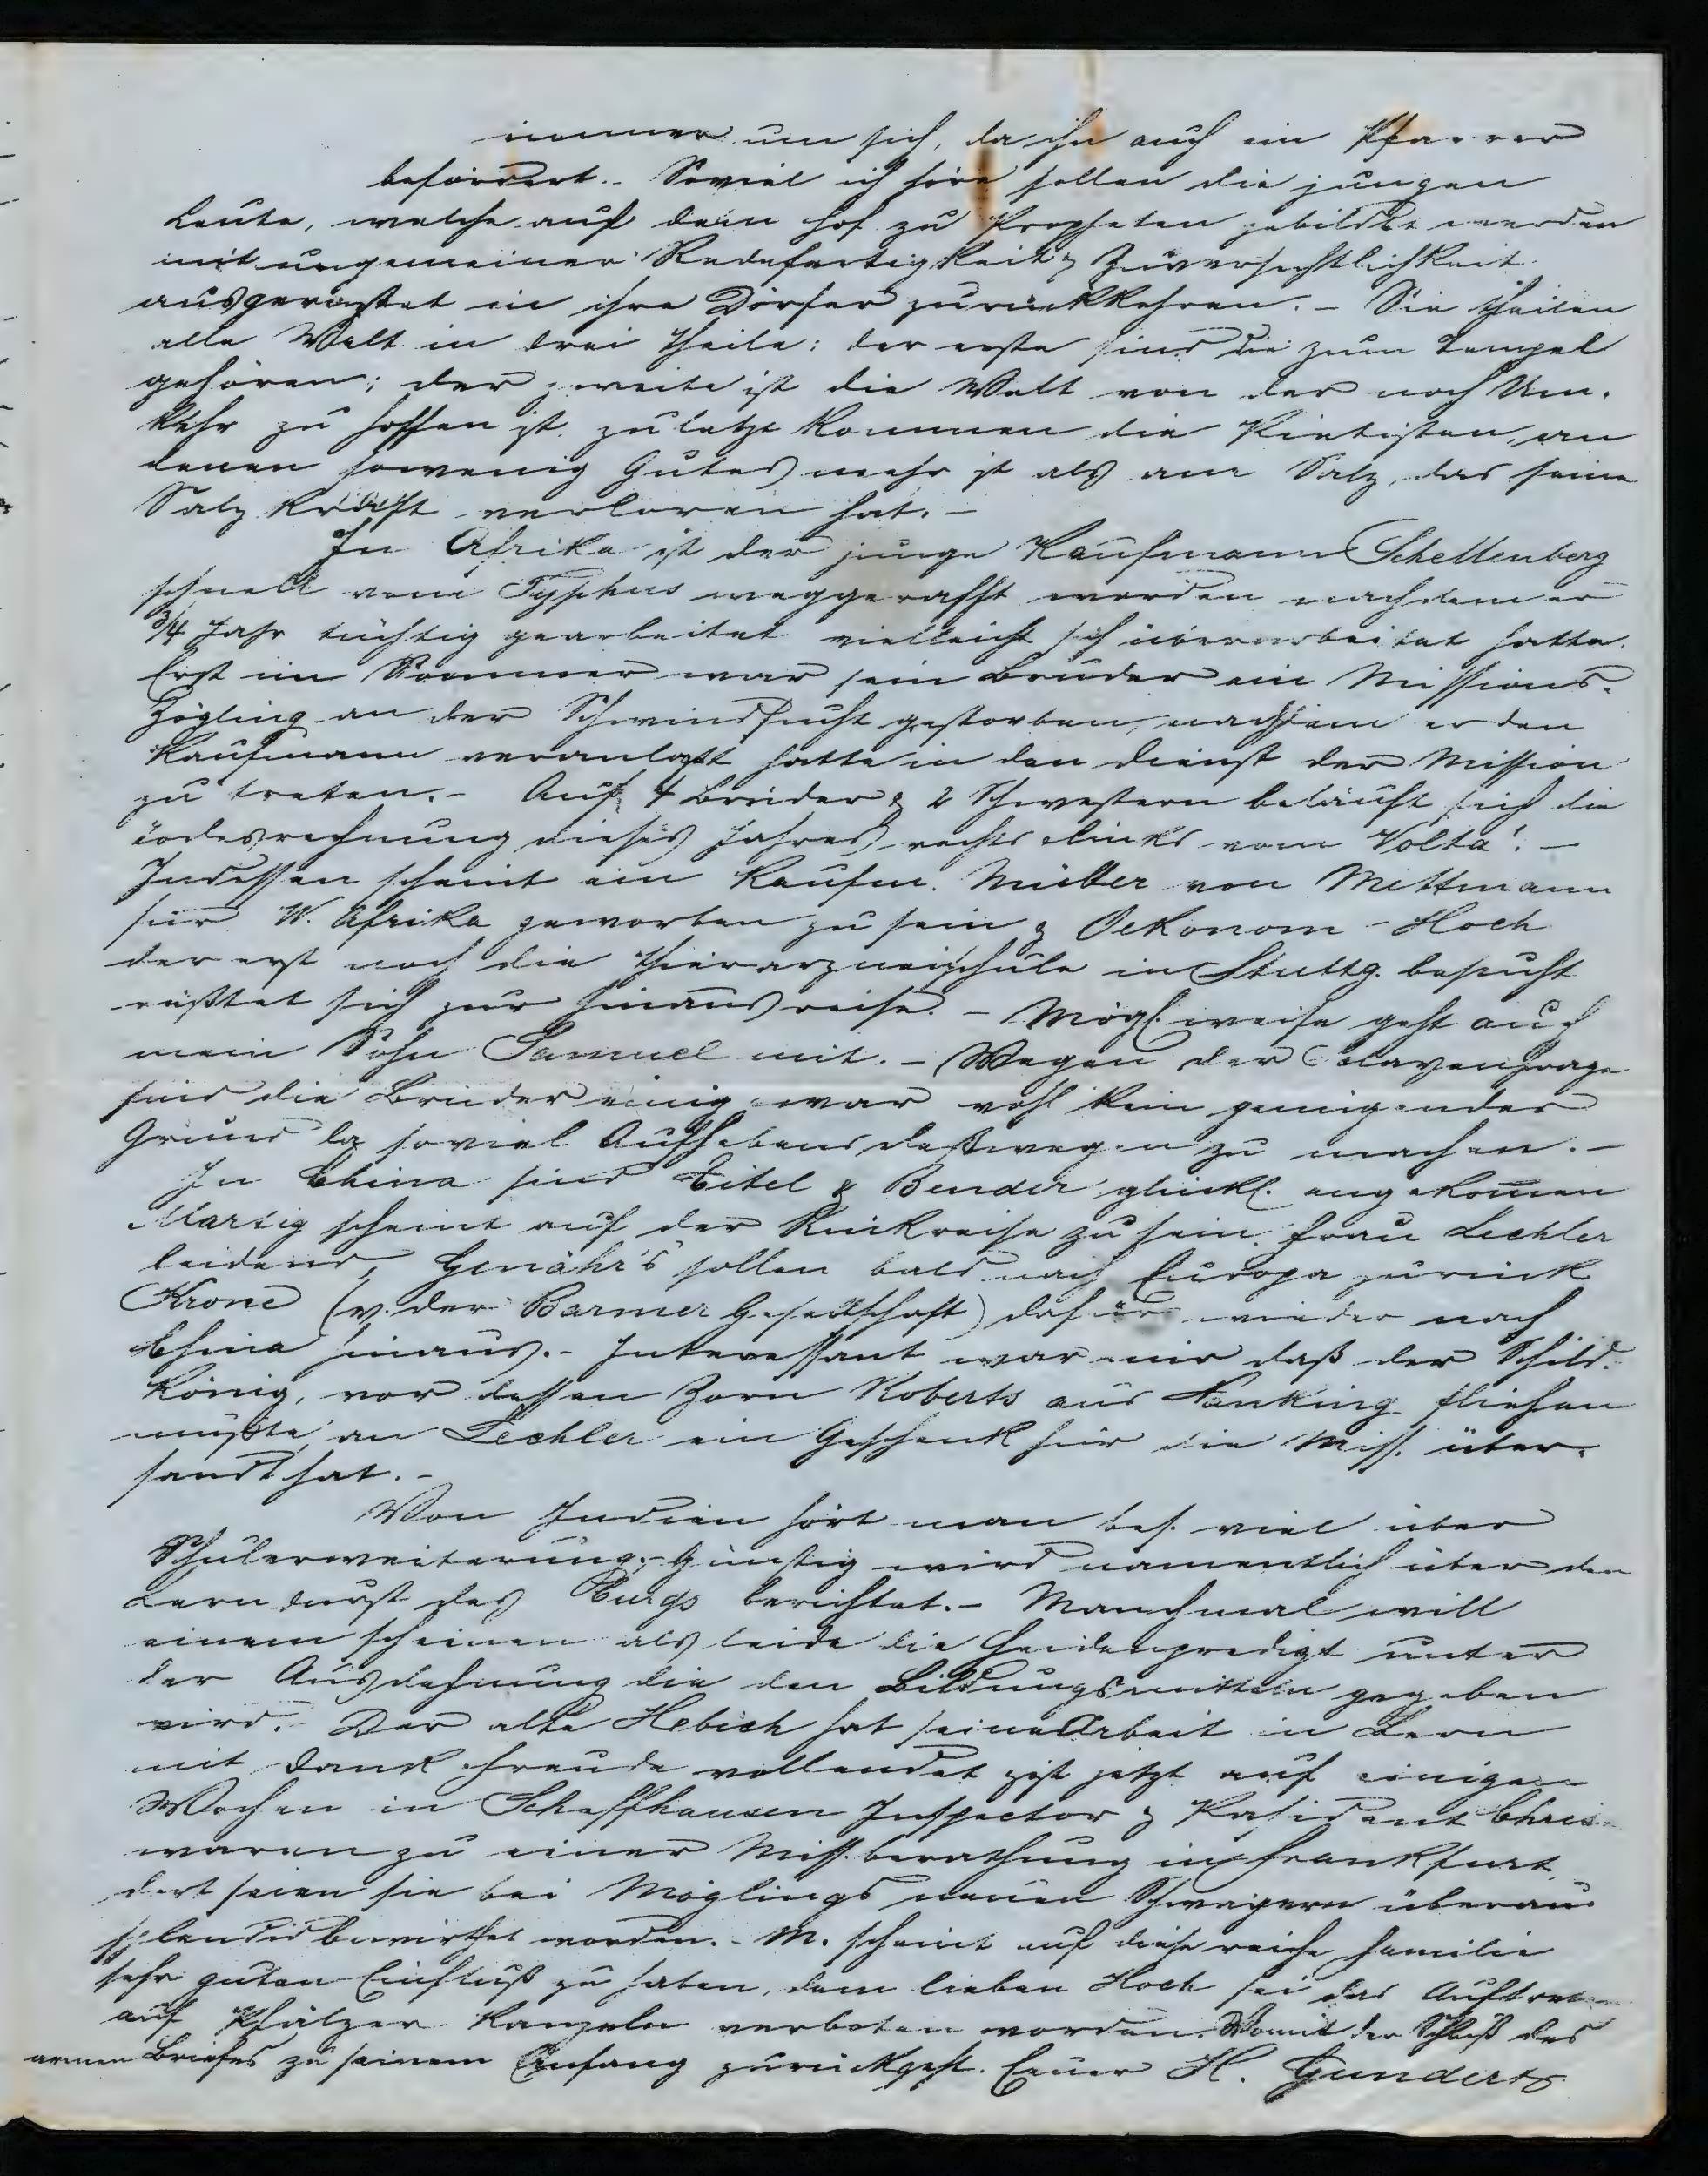 immer um sich, da ihn auch ein Pfarrer
befördert. - Soviel ich höre sollen die jungen
Leute, welche auf dem Hof zu Propheten gebildet werden
mit ungemeiner Redefertigkeit & Zuversichtlichkeit
ausgerüstet in ihre Dörfer zurückkehren. - Sie theilen
alle Welt in drei Theile: der erste sind die zum Tempel
gehören; der zweite ist die Welt von der noch Um-
kehr zu hoffen ist, zuletzt kommen die Pietisten, an
denen sowenig Gutes mehr ist als am Salz, das seine
Salzkraft verloren hat. -
In Afrika ist der junge Kaufmann Schellenberg
schnell vom Typhus weggerafft worden nachdem er
3/4 Jahr tüchtig gearbeitet vielleicht sich überarbeitet hatte.
Erst im Sommer war sein Bruder ein Missions-
Zögling an der Schwindsucht gestorben, nachdem er den
Kaufmann veranlaßt hatte in den Dienst der Mission
zu treten. - Auf 4 Brüder & 2 Schwestern beläuft sich die
Todesrechnung dieses Jahres rechts & links vom Volta! -
Indessen scheint ein Kaufm. Müller von Mettmann
für W. Afrika geworben zu sein & Oekonom Hoch
der erst noch die Thierarzneischule in Stuttg. besucht
rüstet sich zur Hinausreise. - Mögl. weise geht auch
mein Sohn Samuel mit. - Wegen der Sclavenfrage
sind die Brüder einig & war wohl kein genügender
Grund da soviel Aufhebens deßwegen zu machen. -
In China sind Eitel & Bender glückl. angekommen
Martig scheint auf der Rückreise zu sein. Frau Lechler
leidend, Genähr's sollen bald nach Europa zurück
Krone (v. der Barmer Gesellschaft) dafür wieder nach
China hinaus. - Interessant war mir daß der Schild-
könig, vor dessen Zorn Roberts aus Nanking fliehen
mußte, an Lechler ein Geschenk für die Miss. über-
sandt hat. -
Von Indien hört man bes. viel über
Schulerweiterung. - Günstig wird namentlich über den
Lerndurst des Curgs berichtet. - Manchmal will
einem scheinen als leide die Heidenpredigt unter
der Ausdehnung die den Bildungsmitteln gegeben
wird. - Der alte Hebich hat seine Arbeit in Bern
mit Dank & Freude vollendet & ist jetzt auf einige
Wochen in Schaffhausen Inspector & Präsident Christ
waren zu einer Miss.berathung in Frankfurt,
dort seien sie bei Möglings neuen Schwägern überaus
splendid bewirthet worden. - M. scheint auf diese reiche Familie
sehr guten Einfluß zu haben, dem lieben Hoch sei das Auftreten
auf Pfälzer Kanzeln verboten worden. Womit der Schluß des
armen Briefes zu seinem Anfang zurückgeht. Euer H. Gundert